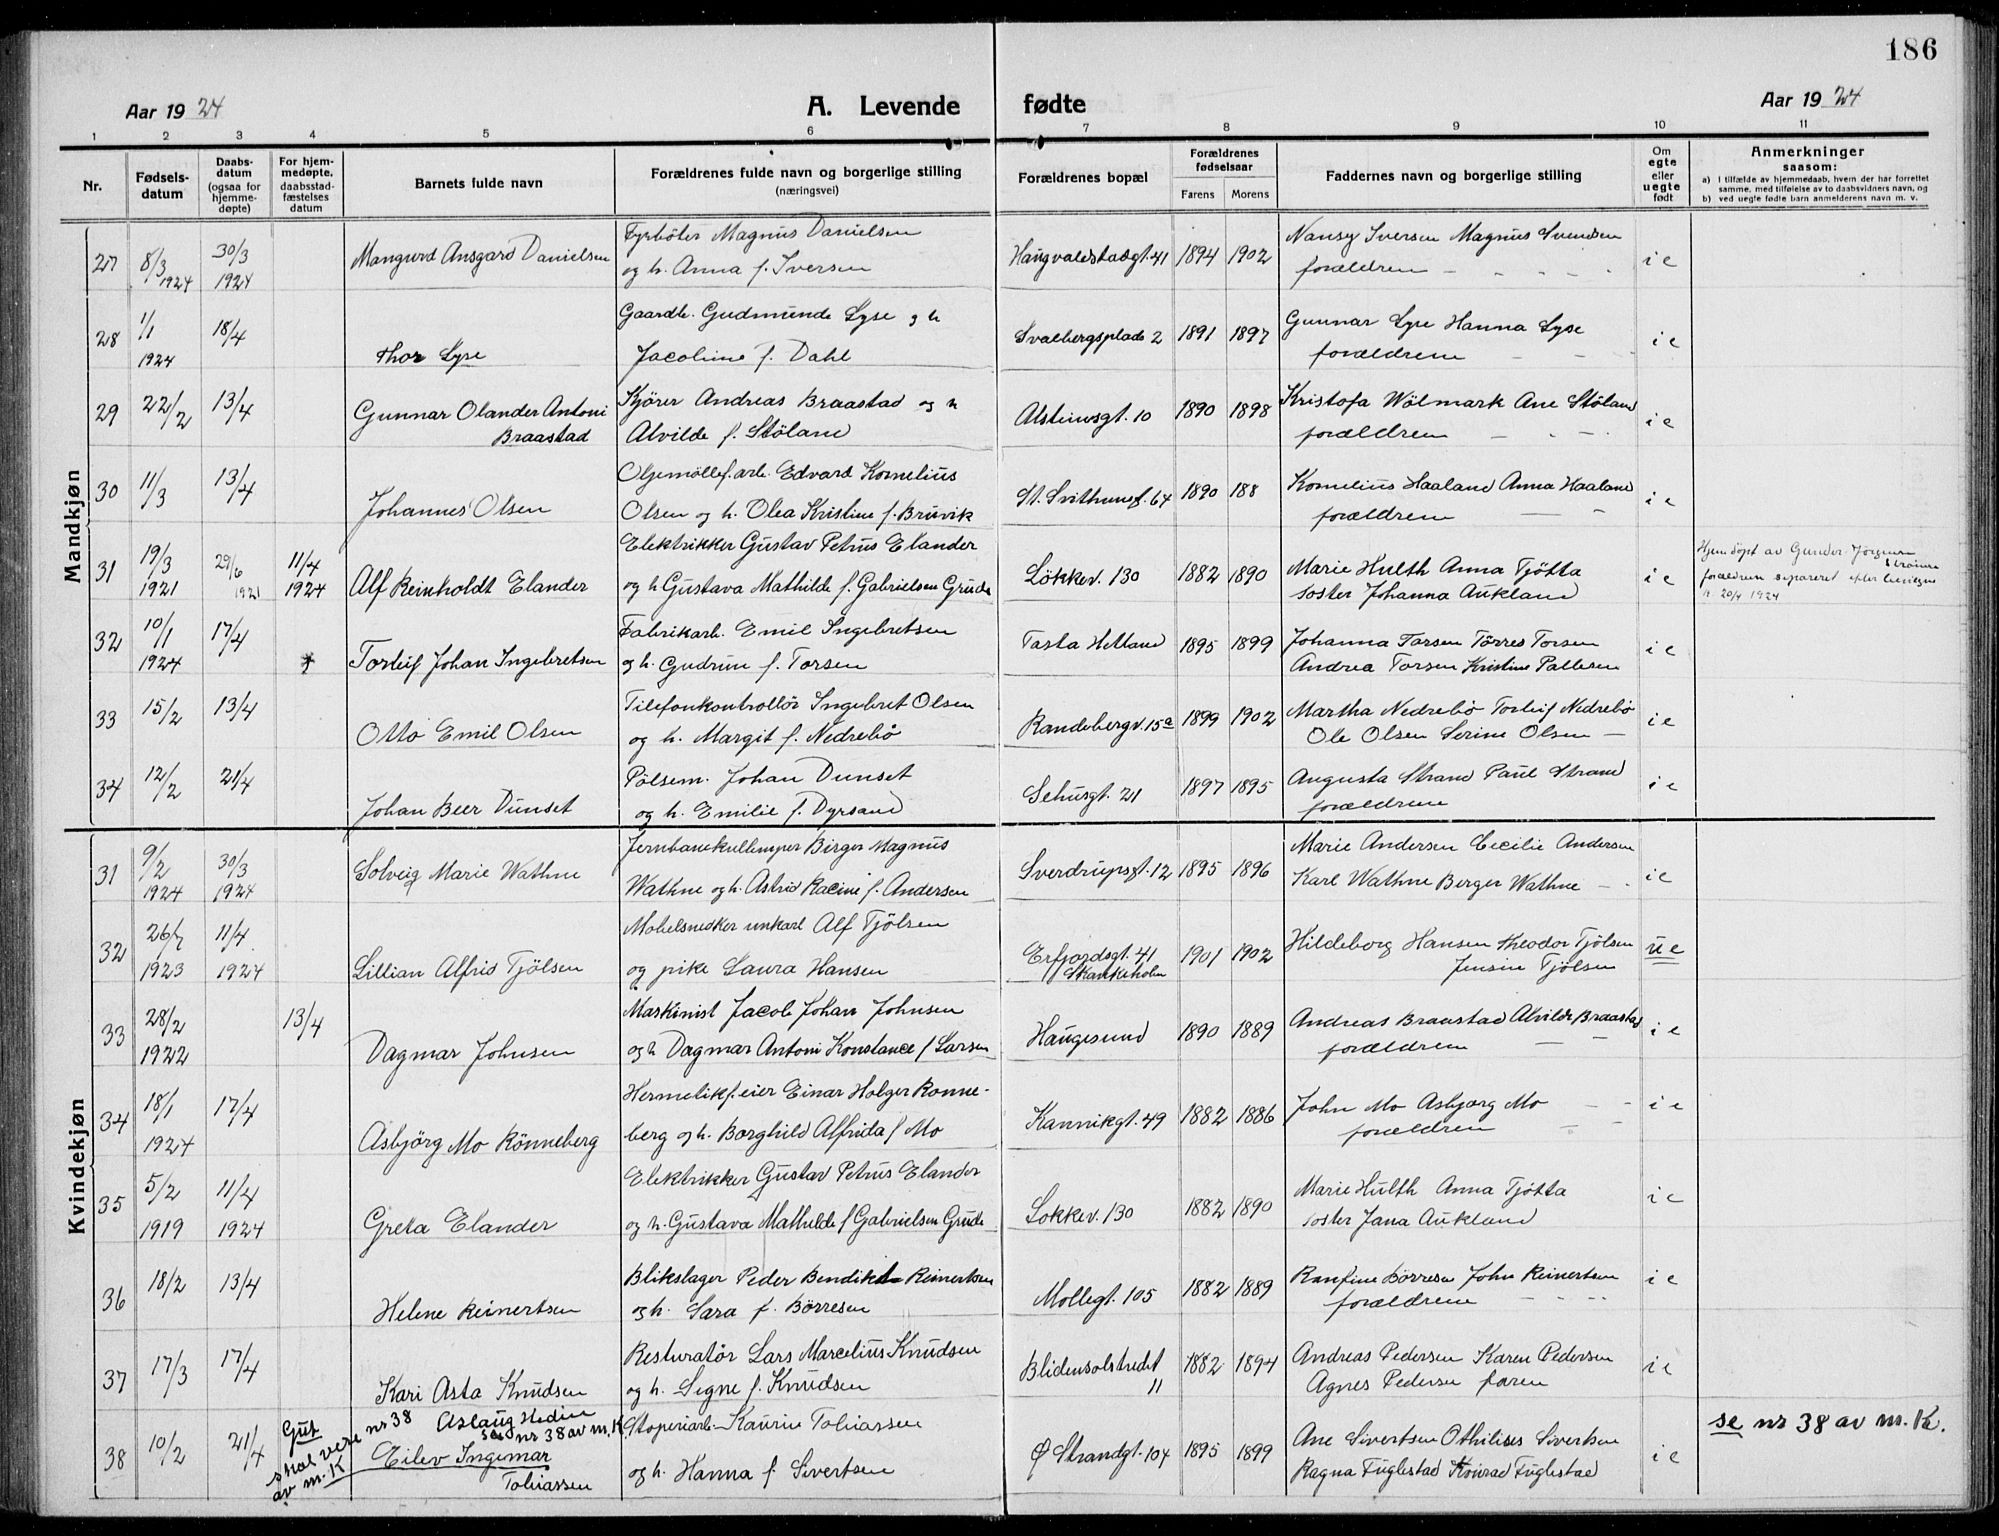 186
Aar 1924
A. Levende fødte
Aar 1924
1 2 3 4 5 6 7 8 9 10 11
Nr.
Fødsels-
datum
Daabs-
datum
(ogsaa for
hjemme-
døpte)
For hjem-
medøpte,
daabsstad-
fæstelses
datum
Barnets fulde navn
Forældrenes fulde navn og borgerlige stilling
(næringsvei)
Forældrenes bopæl
Forældrenes
fødselsaar
Farens Morens
Faddernes navn og borgerlige stilling
Om
egte
eller
uegte
født
Anmerkninger
saasom:
a) i tilfælde av hjemmedaab, hvem der har forrettet
samme, med tilføielse av to daabsvidners navn, og
b) ved uegte fødte barn anmelderens navn m. v.
Mandkjøn
27 8/3 1924 30/3 1924 Mangurd Ansgard Danielsen
Fyrböter Magnus Danielsen
og h. Anna f. Iversen
Haugvaldstadgt. 41 1894 1902
Nansy Iversen Magnus Svendsen
forældrene
i e
28 1/1 1924 18/4 Thor Lyse
Gaardb. Gudmunde Lyse og h
Jacobine f. Dahl
Svalbergsplads 2 1891 1897
Gunnar Lyse Hanna Lyse
forældrene
i e
29 22/2 13/4 Gunnar Olander Antoni
Braastad
Kjörer Andreas Braastad og h
Alvilde f. Stöland
Alsteinsgt. 10 1890 1898
Kristofa Wölmark Ane Stöland
forældrene
i e
30 11/3 13/4 Johannes Olsen
Oljemöllef.arb. Edvard Kornelius
Olsen og h. Olea Kristine f. Bruvik
St. Svithunsg. 64 1890 188
Kornelius Haaland Anna Haaland
forældrene
i e
31 19/3 1921 29/6 1921 11/4 1924 Alf Reinholdt Elander
Elektrikker Gustav Petrus Elander
og h Gustava Mathilde f. Gabrielsen Grude
Lökkev. 130 1882 1890
Marie Hulth Anna Tjötta
soster Johanna Aukland
i e
Hjemdöpt av Gunder Jörgensen
forældrene separeret efter
20/4 1924
32 10/1 1924 17/4 Torleif Johan Ingebretsen
Fabrikarb. Emil Ingebretsen
og h. Gudrun f. Torsen
Tasta Hetland 1895 1899
Johanna Torsen Törres Torsen
Andrea Torsen Kristine Pallesen
i e
33 15/2 13/4 Otto Emil Olsen
Tilefonkontrollör Ingebret Olsen
og h. Margit f. Nedrebö
Randebergv. 15a 1899 1902
Martha Nedrebö Torleif Nedrebö
Ole Olsen Serine Olsen
i e
34 12/2 21/4 Johan Beer Dunset
Pölsem. Johan Dunset
og h. Emilie f. Dyrsand
Sehusgt. 21 1897 1895
Augusta Strand Paul Strand
forældrene
i e
Kvindekjøn
31 9/2 1924 30/3 1924 Solveig Marie Wathne
Jernbanekullemper Birger Magnus
Wathne og h. Astrid Racine f. Andersen
Sverdrupsgt. 12 1895 1896
Marie Andersen Cecilie Andersen
Karl Wathne Berger Wathne
i e
32 26/7 1923 11/4 1924 Lillian Alfrid Tjölsen
Mobelsnedker unkarl Alf Tjölsen
og pike Laura Hansen
Erfjordsgt. 41
Skankeholm 1901 1902
Hildeborg Hansen Theodor Tjölsen
Jensine Tjölsen
u e
33 28/2 1922 13/4 Dagmar Johnsen
Maskinist Jacob Johan Johnsen
og h Dagmar Antoni Konstance f Larsen
Haugesund 1890 1889
Andreas Braastad Alvilde Braastad
forældrene
i e
34 18/1 1924 17/4 Asbjörg Mo Rönneberg
Hermetikf.eier Einar Holger Ronne-
berg og h. Borghild Alfrida f Mo
Kannikgt. 49 1882 1886
John Mo Asbjorg Mo
forældrene
i e
35 5/2 1919 11/4 1924 Greta Elander
Elektrikker Gustav Petrus Elander
og h. Gustava Mathilde f Gabrielsen Grude
Lokkev. 130 1882 1890
Marie Hulth Anna Tjötta
soster Jana Aukland
i e
36 18/2 13/4 Helene Reinertsen
Blikslager Peder Bendikt Reinertsen
og h. Sara f. Börresen
Mollegt. 105 1882 1889
Ranfine Börresen John Reinertsen
forældrene
i e
37 17/3 17/4 Kari Asta Knudsen
Resturatör Lars Marcelius Knudsen
og h. Signe f. Knudsen
Blidensolstredet
11 1882 1894
Andreas Pedersen Karen Pedersen
Agnes Pedersen faren
i e
38 10/2 21/4
Gut
skal vere nr 38
av m. K
Aslaug Hedin
se nr 38 av m. K
Eilev Ingemar
Tobiassen
Stoperiarb. Kaurin Tobiassen
og h. Hanna f. Sivertsen
Ø Strandgt. 104 1895 1899
Ane Sivertsen Othilises Sivertsen
Ragna Fuglestad Konrad Fuglestad
i e
se nr 38 av m. K.